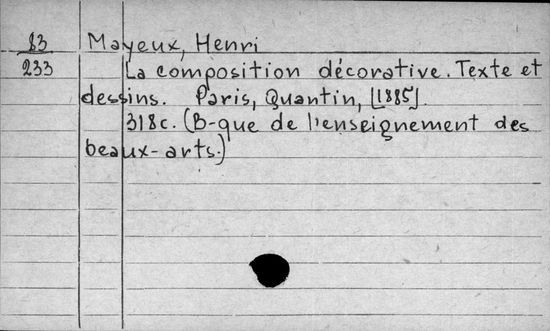 83 Mayeux, Henri
233 La composition décorative. Texte et
dessins. Paris, Quantin, [1885].
318c. (B-que de l'enseignement des
beaux-arts.)